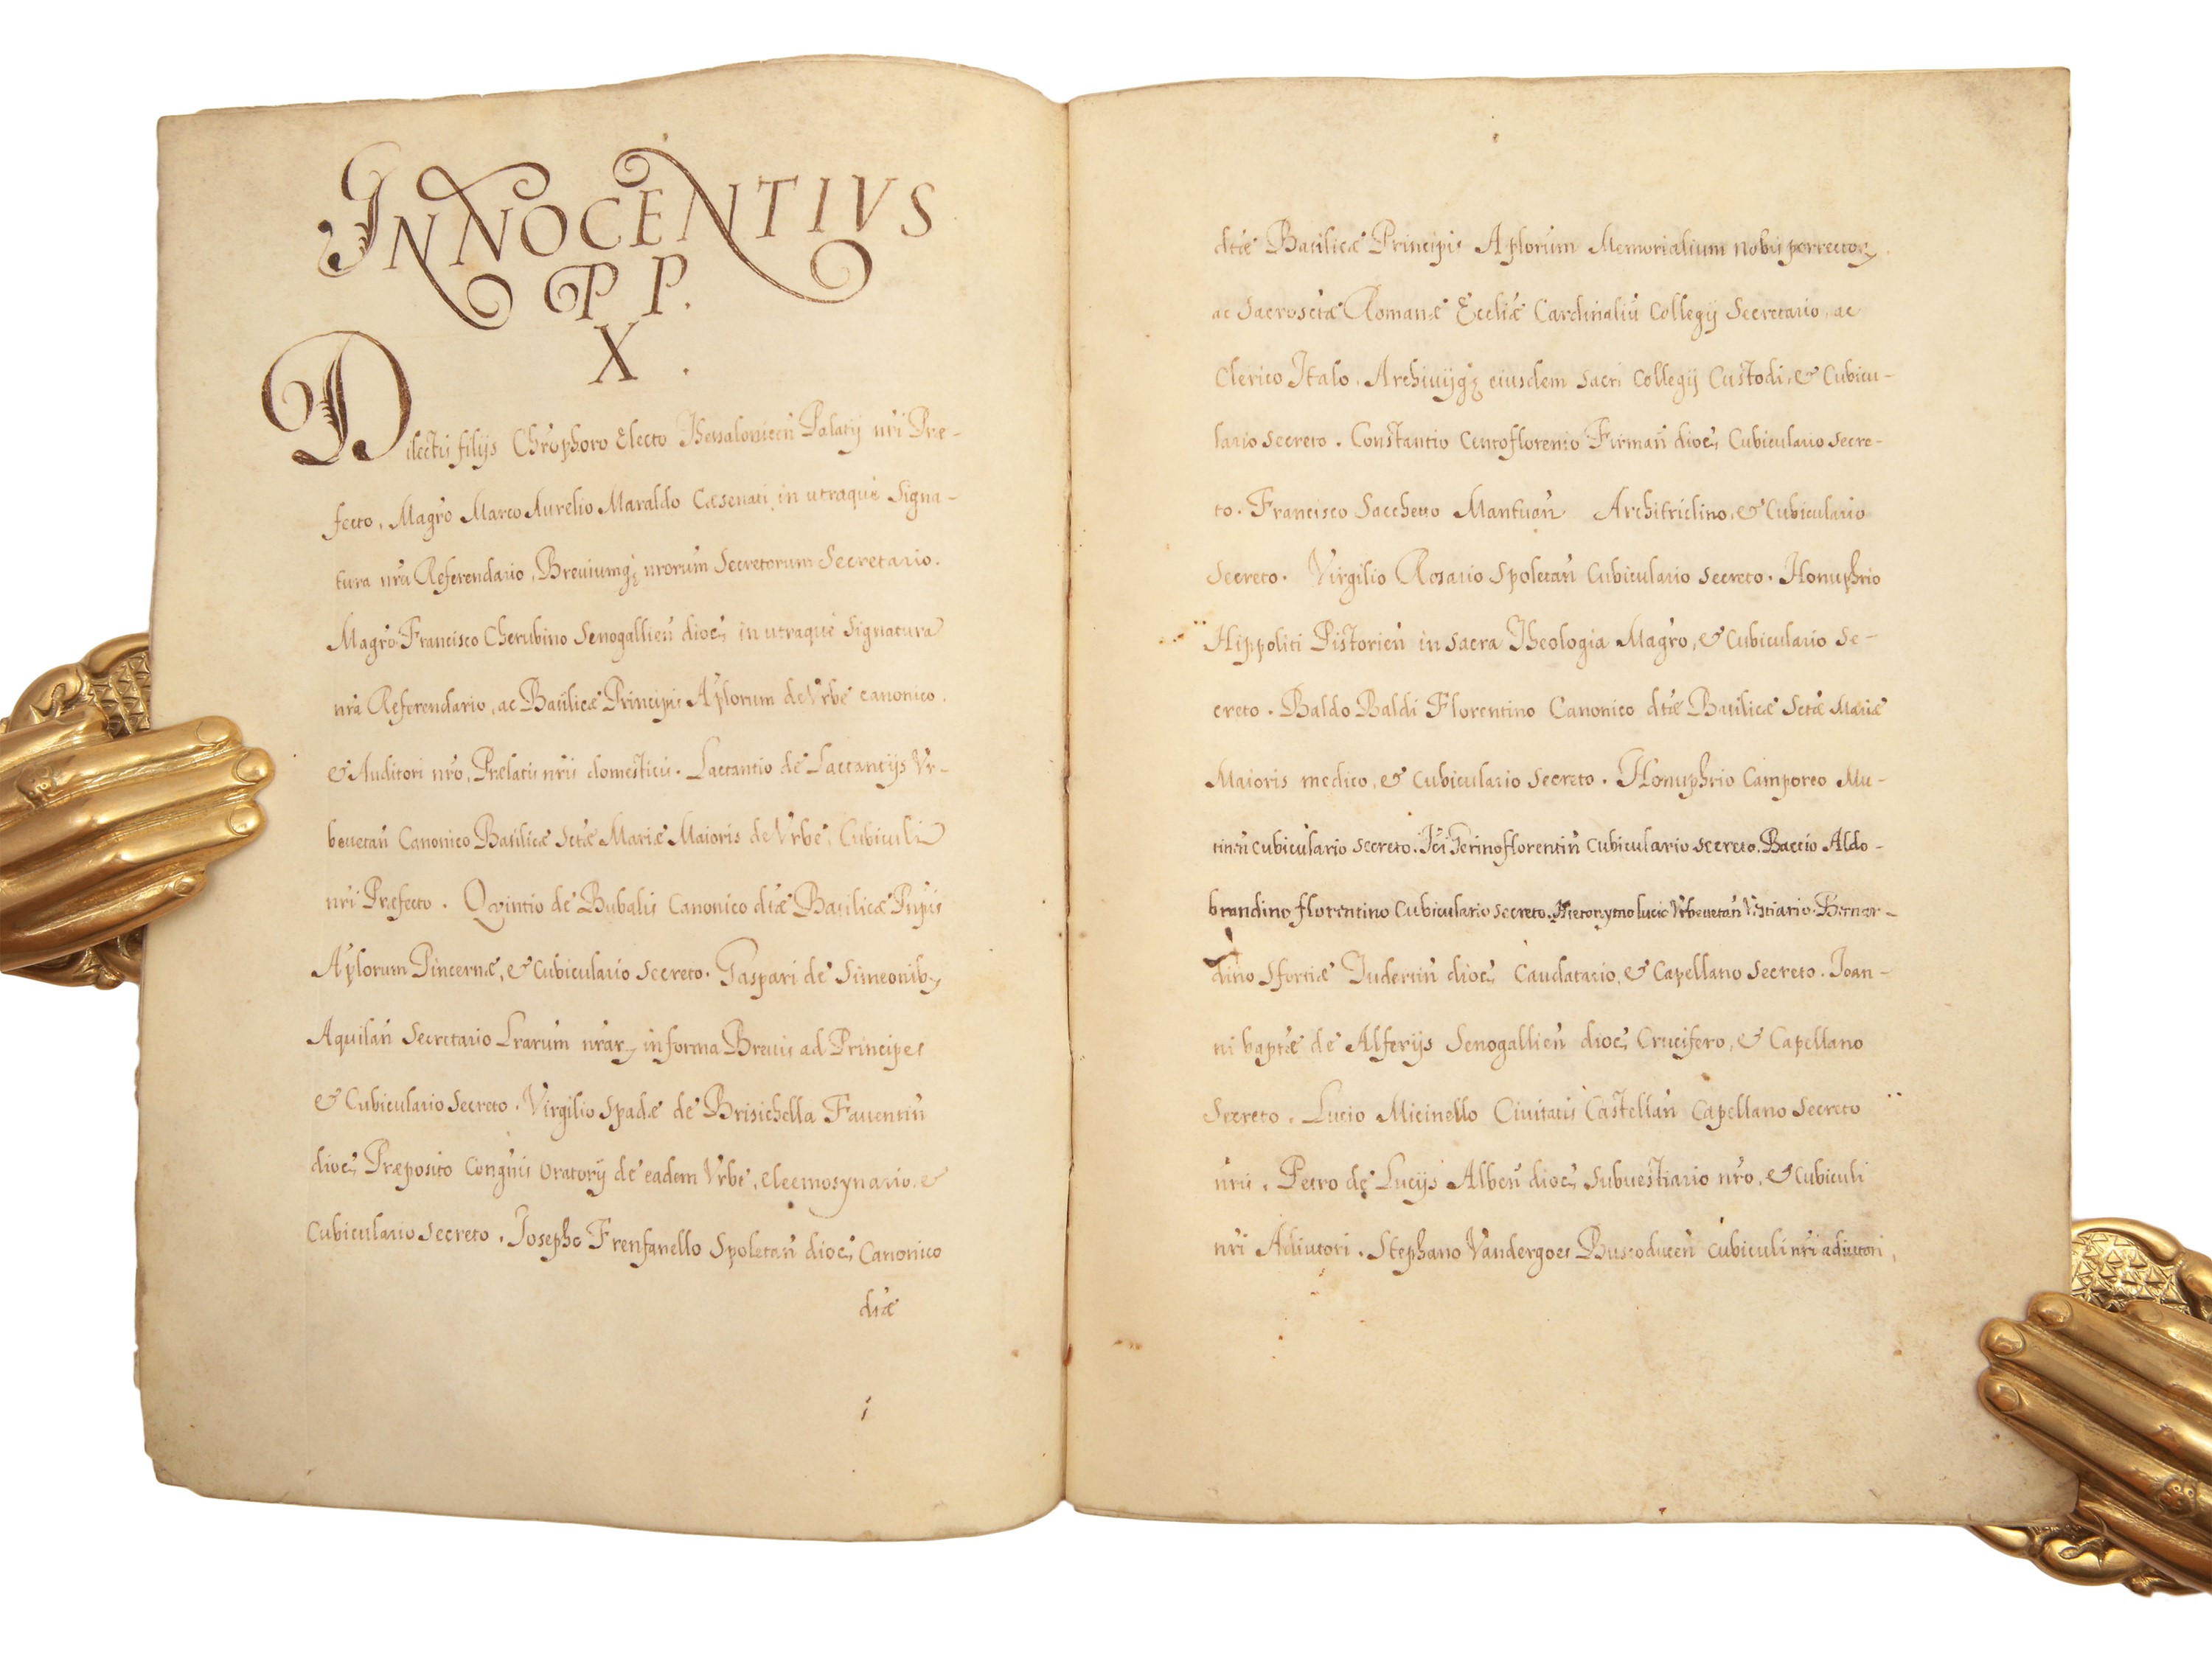 INNOCENTIVS
P P.
X .
Dilectis filijs Chr̃ophoro Electo Thessaloniceñ Palatij nr̃i Præ-
fecto, Magr̃o Marco Aurelio Maraldo Cæsenati, in utraque Signa-
tura nr̃a Referendario, Breuiumq; nrorum Secretorum Secretario.
Magr̃o Francisco Cherubino Senogallieñ dioc; in utraque Signatura
nr̃a Referendario, ac Basilicæ Principis Ap̃lorum de Vrbe canonico.
& Auditori nr̃o, Prælatis nr̃is domesticis. Lactantio de Lactantijs Vr-
beuetañ Canonico Basilicæ Sctæ Mariæ Maioris de Vrbe, Cubiculi
nr̃i Præfecto. Qvintio de Bubalis Canonico dtæ Basilicæ Pñpis
Ap̃lorum Pincernæ, & Cubiculario Secreto. Gaspari de Simeonib;
Aquilañ Secretario Lrarum nrar; in forma Breuis ad Principes
& Cubiculario Secreto. Virgilio Spadæ de Brisichella Fauentiñ
dioc; Præposito Congñis Oratorij de eadem Vrbe, eleemosynario, &
Cubiculario Secreto. Josepho Frenfanello Spoletañ dioc; Canonico
dtæ
dtæ Basilicæ Principis Aplorum Memorialium nobis porrector;
ac Sacrosctæ Romanæ Eccliæ Cardinaliũ Collegij Secretario, ac
Clerico Italo. Archiuijq; eiusdem Sacri Collegij Custodi, & Cubicu-
lario Secreto. Constantio Centoflorenio Firmañ dioc; Cubiculario Secre-
to. Francisco Saccheuo Mantuañ Architriclino, & Cubiculario
Secreto. Virgilio Rosario Spoletañ Cubiculario Secreto. Honuphrio
Hippoliti Pistorieñ in sacra Theologia Magr̃o, & Cubiculario Se-
creto. Baldo Baldi Florentino Canonico dtæ Basilicæ Sctæ Mariæ
Maioris medico, & Cubiculario Secreto. Honuphrio Camporeo Mu-
tineñ Cubiculario Secreto. florentiñ Cubiculario Secreto. Baccio Aldo-
brandino florentino Cubiculario Secreto. Hieronymo lucio Vrbeuetañ Vestiario. Bernar-
dino Sfortiæ Tudertiñ dioc; Caudatario, & Capellano Secreto. Joan-
ni baptæ de Alferijs Senogallieñ dioc; Crucifero, & Capellano
Secreto. Lucio Micinello Ciuitatis Castellañ Capellano Secreto
nr̃is. Petro de Lucijs Albeñ dioc; Subuestiario nr̃o, & Cubiculi
nr̃i Adiutori. Stephano Vandergoes Buscoduceñ cubiculi nr̃i adiutori,